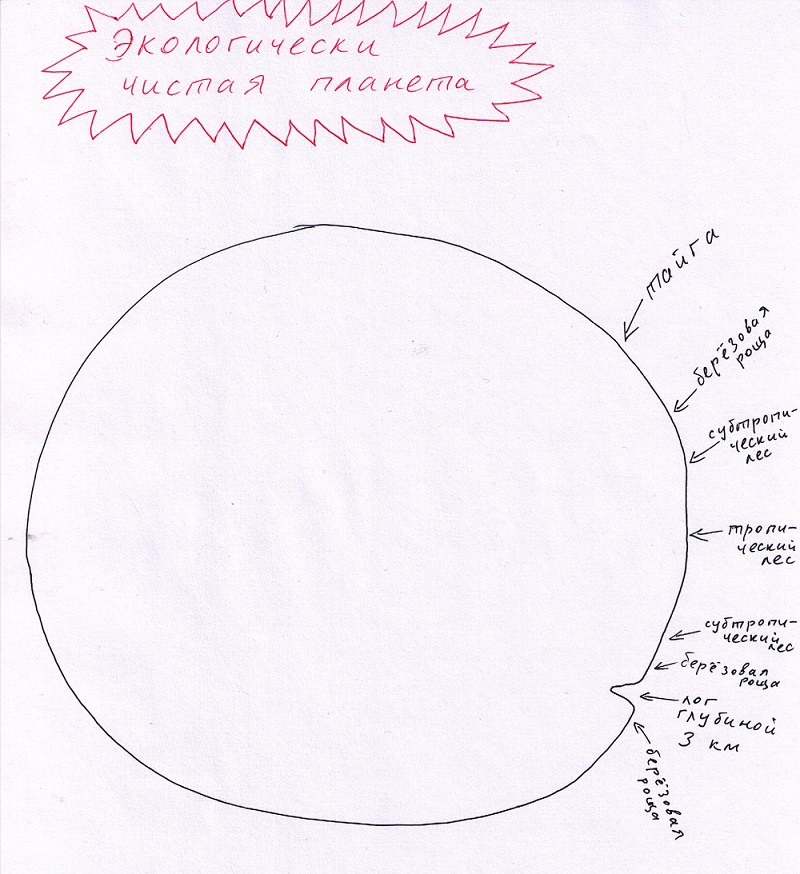 Экологически
чистая планета
тайга
берёзовая
роща
субтропи-
ческий
лес
тропи-
ческий
лес
субтропи-
ческий
лес
берёзовая
роща
лог
глубиной
3 км
берёзовая
роща